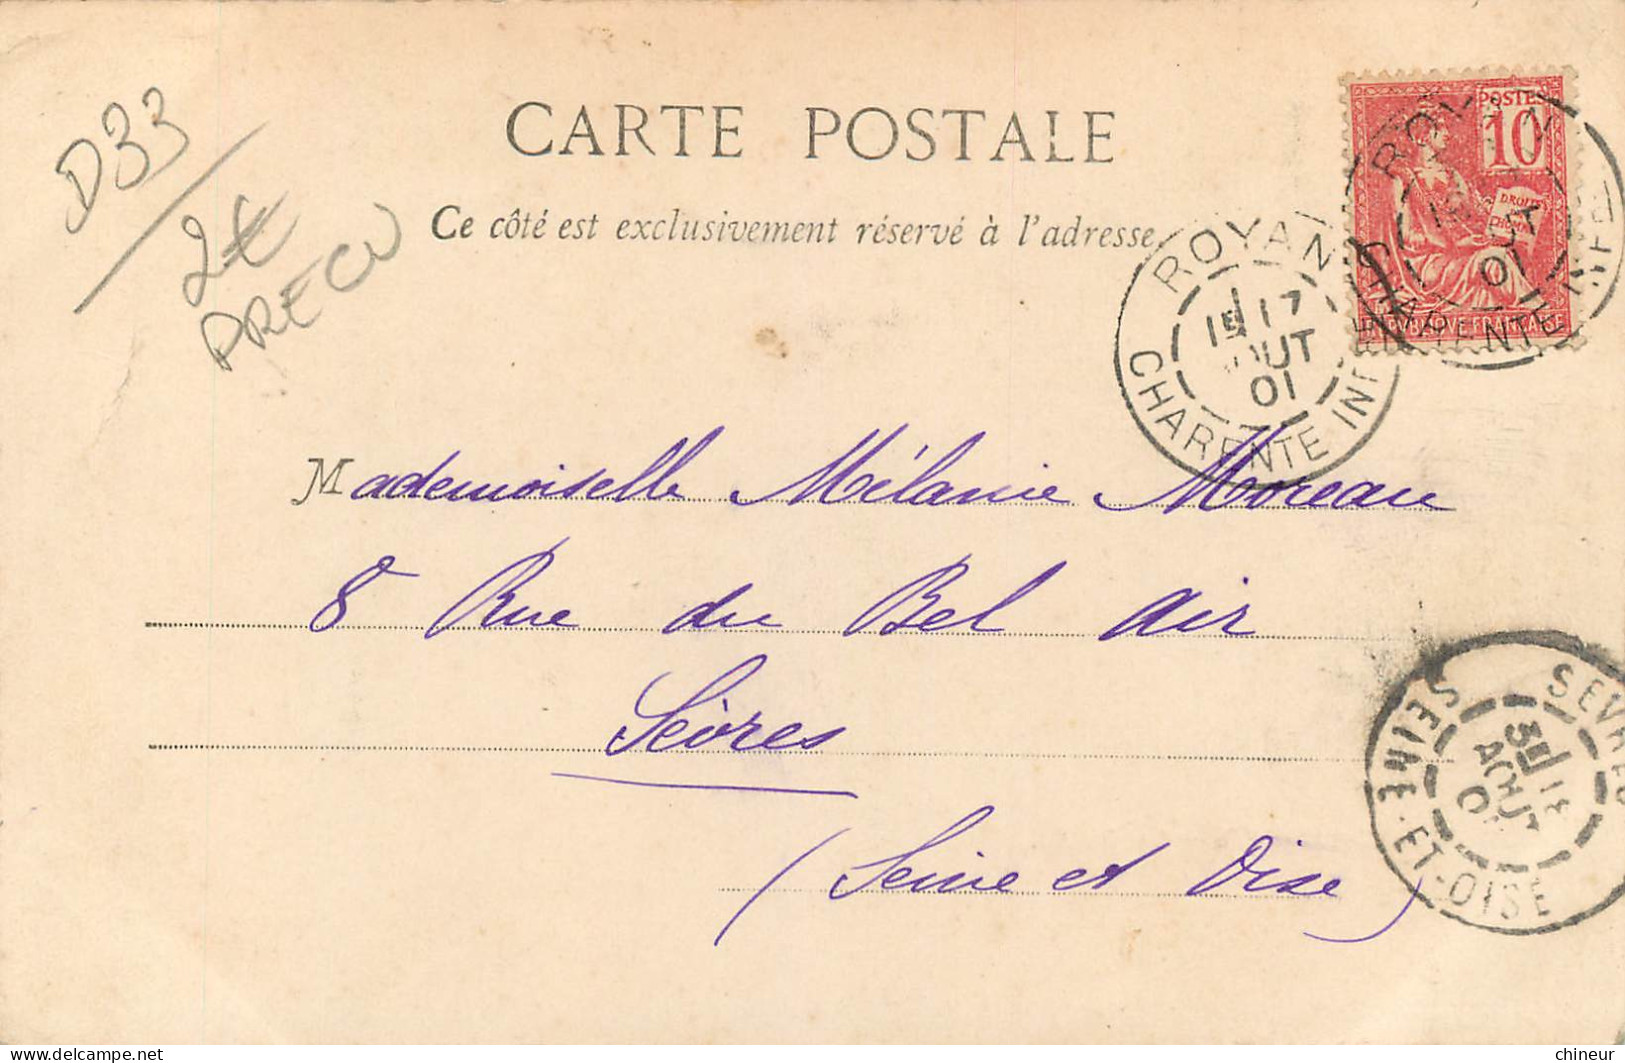 D33
2€
PRECU
CARTE POSTALE
Ce côté est exclusivement réservé à l'adresse
POSTES
10
DROITS
ROYAN
17
AOUT
01
CHARENTE INFRE
ROYAN
1E 17
OUT
01
CHARENTE INF
Mademoiselle Mélanie Moreau
8 Rue du Bel Air
Sèvres
(Seine et Oise)
SEVRES
3E 18
AOUT
01
SEINE-ET-OISE
www.delcampe.net
chineur